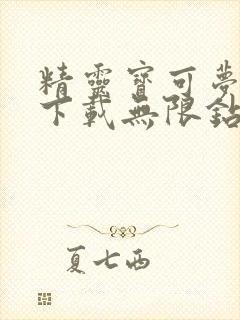 精靈寶可夢
下載無限鉆
夏七西